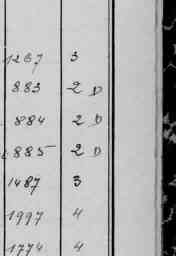 1267 3
883 2 D
884 2 D
885 2 D
1487 3
1997 4
1774 4